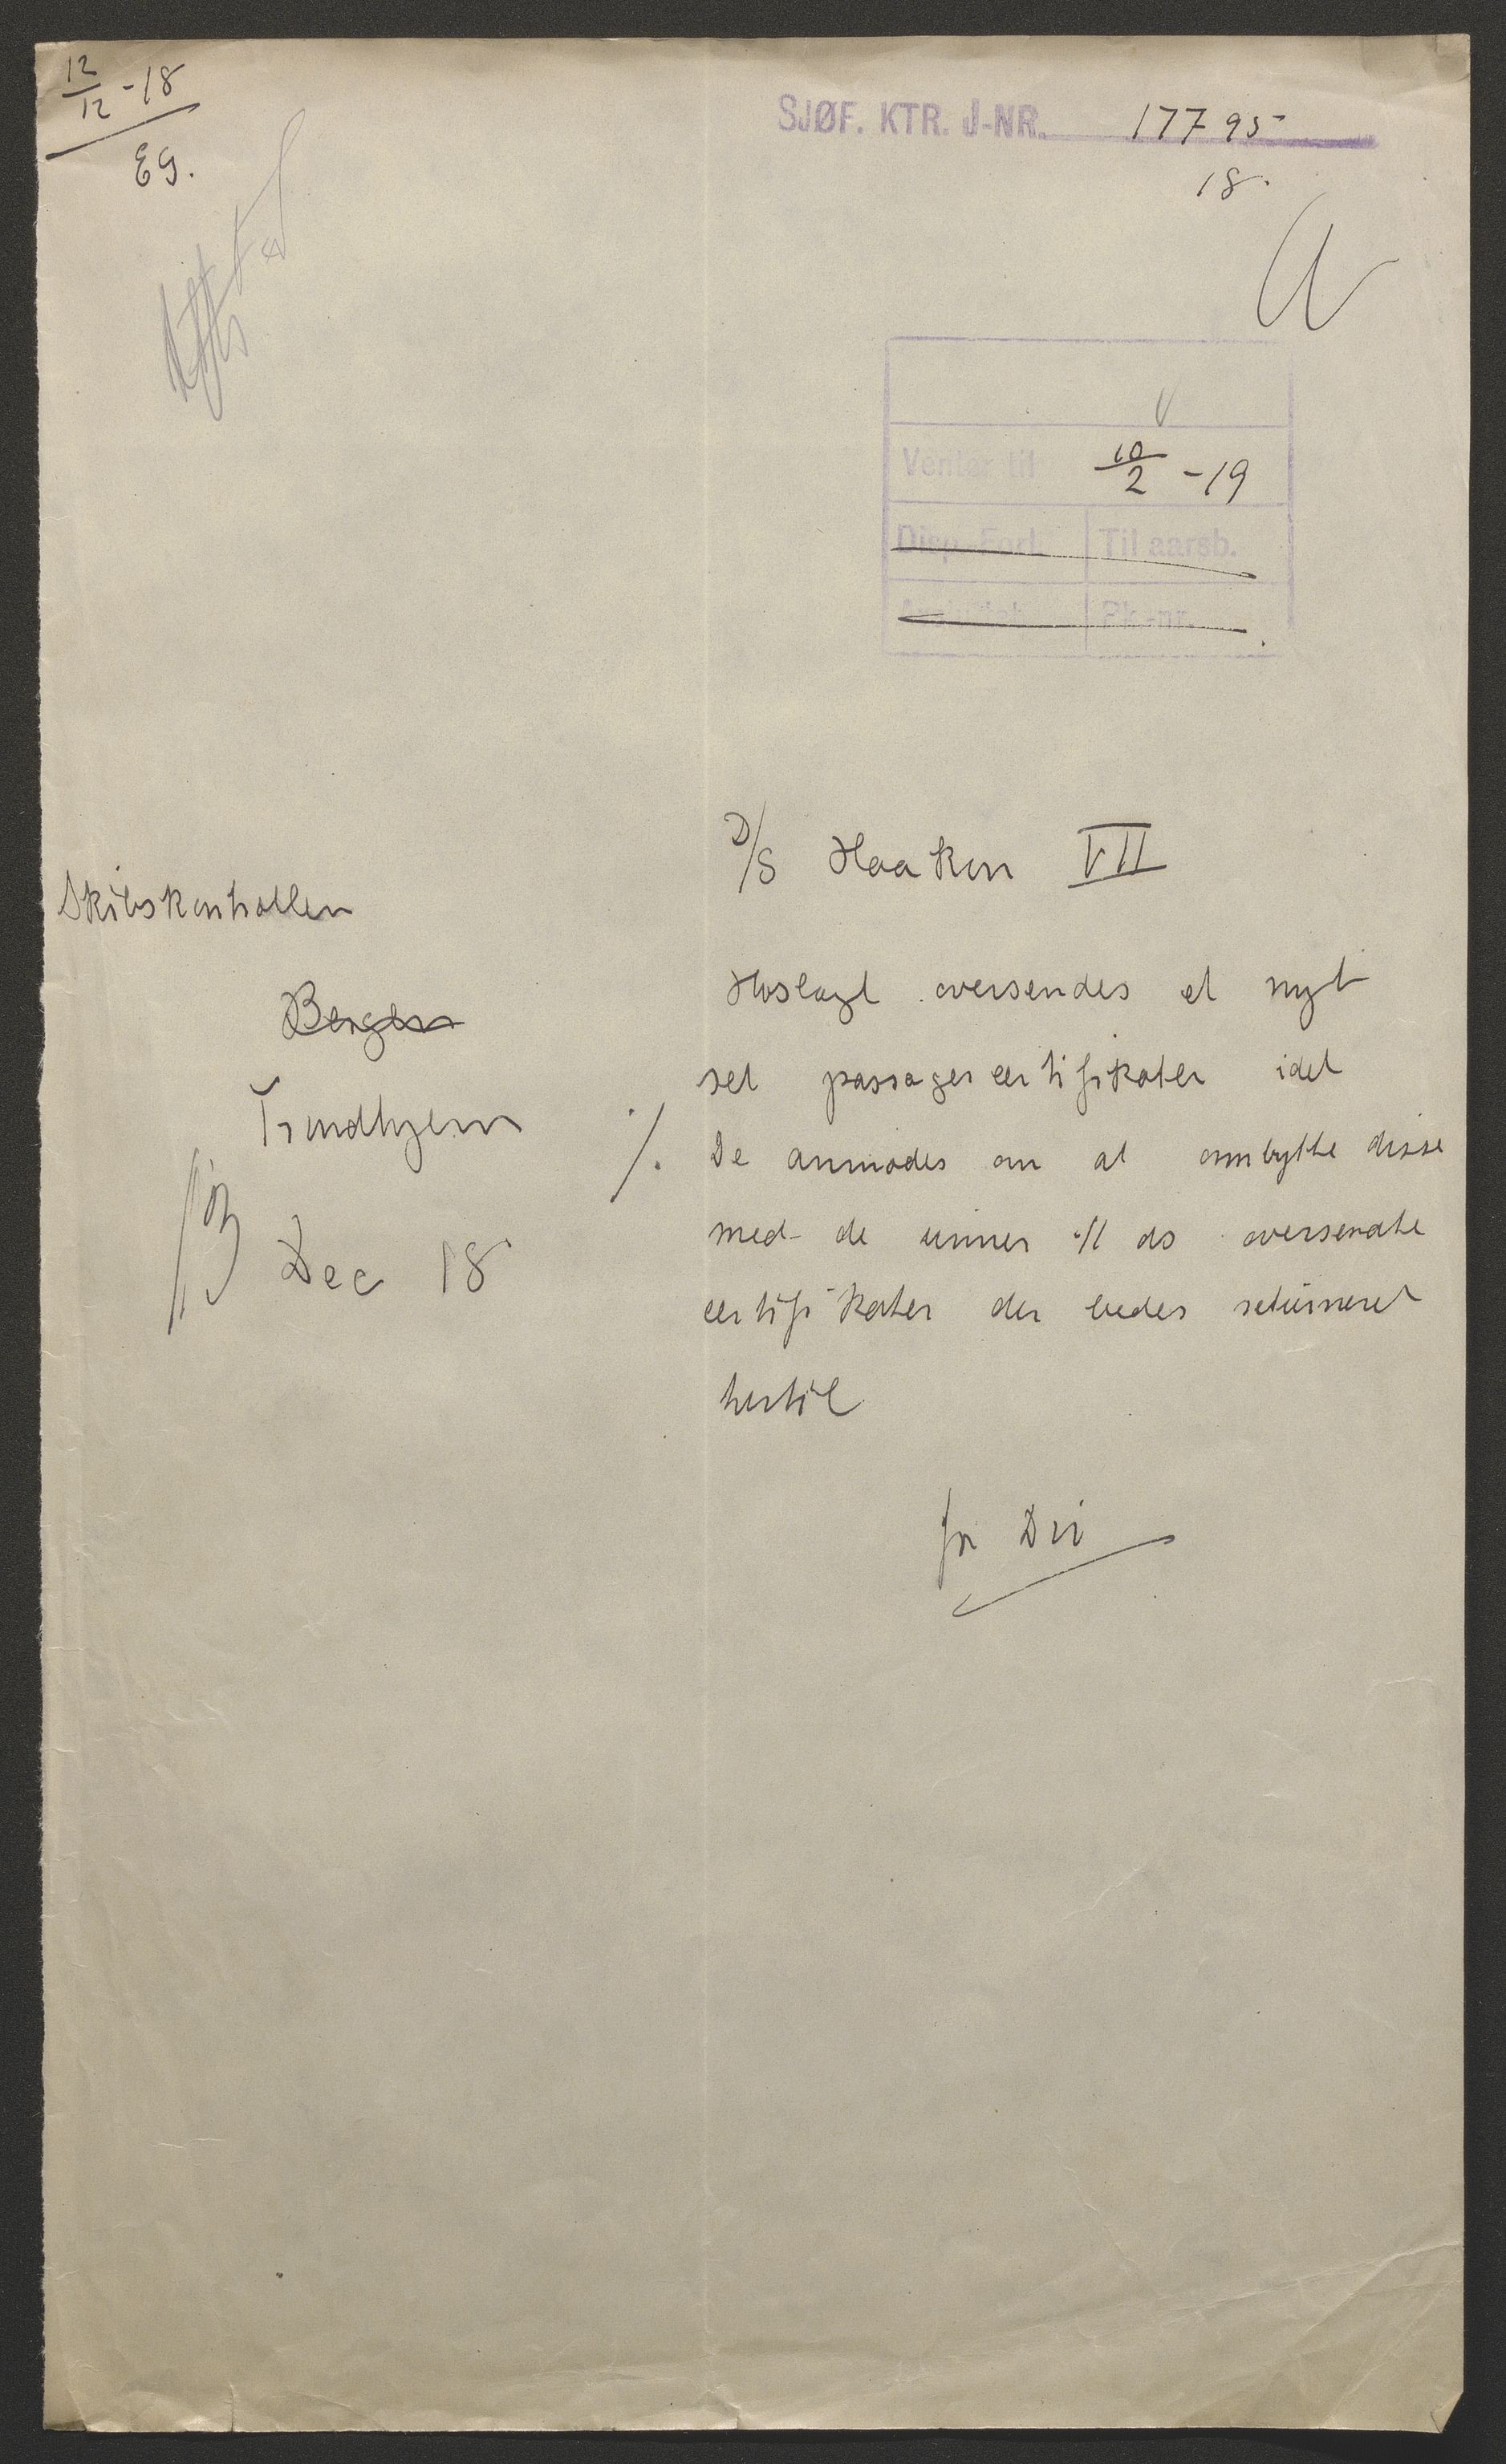 12/12 -18
EG.
SJØF. KTR. J-NR. 17795
18.
Venter til 10/2 -19
Disp.-Forl. Til aarsb.
Pk.-nr.
D/S Haakon VII
Skibskontrollen
Bergen
Trondhjem
13 Dec 18
Hoslagt oversendes et nyt
set passagercertifikater idet
./. De anmodes om at ombytte disse
med de under 4/1 ds oversendte
certifikater der bedes returneret
hertil
for Dir